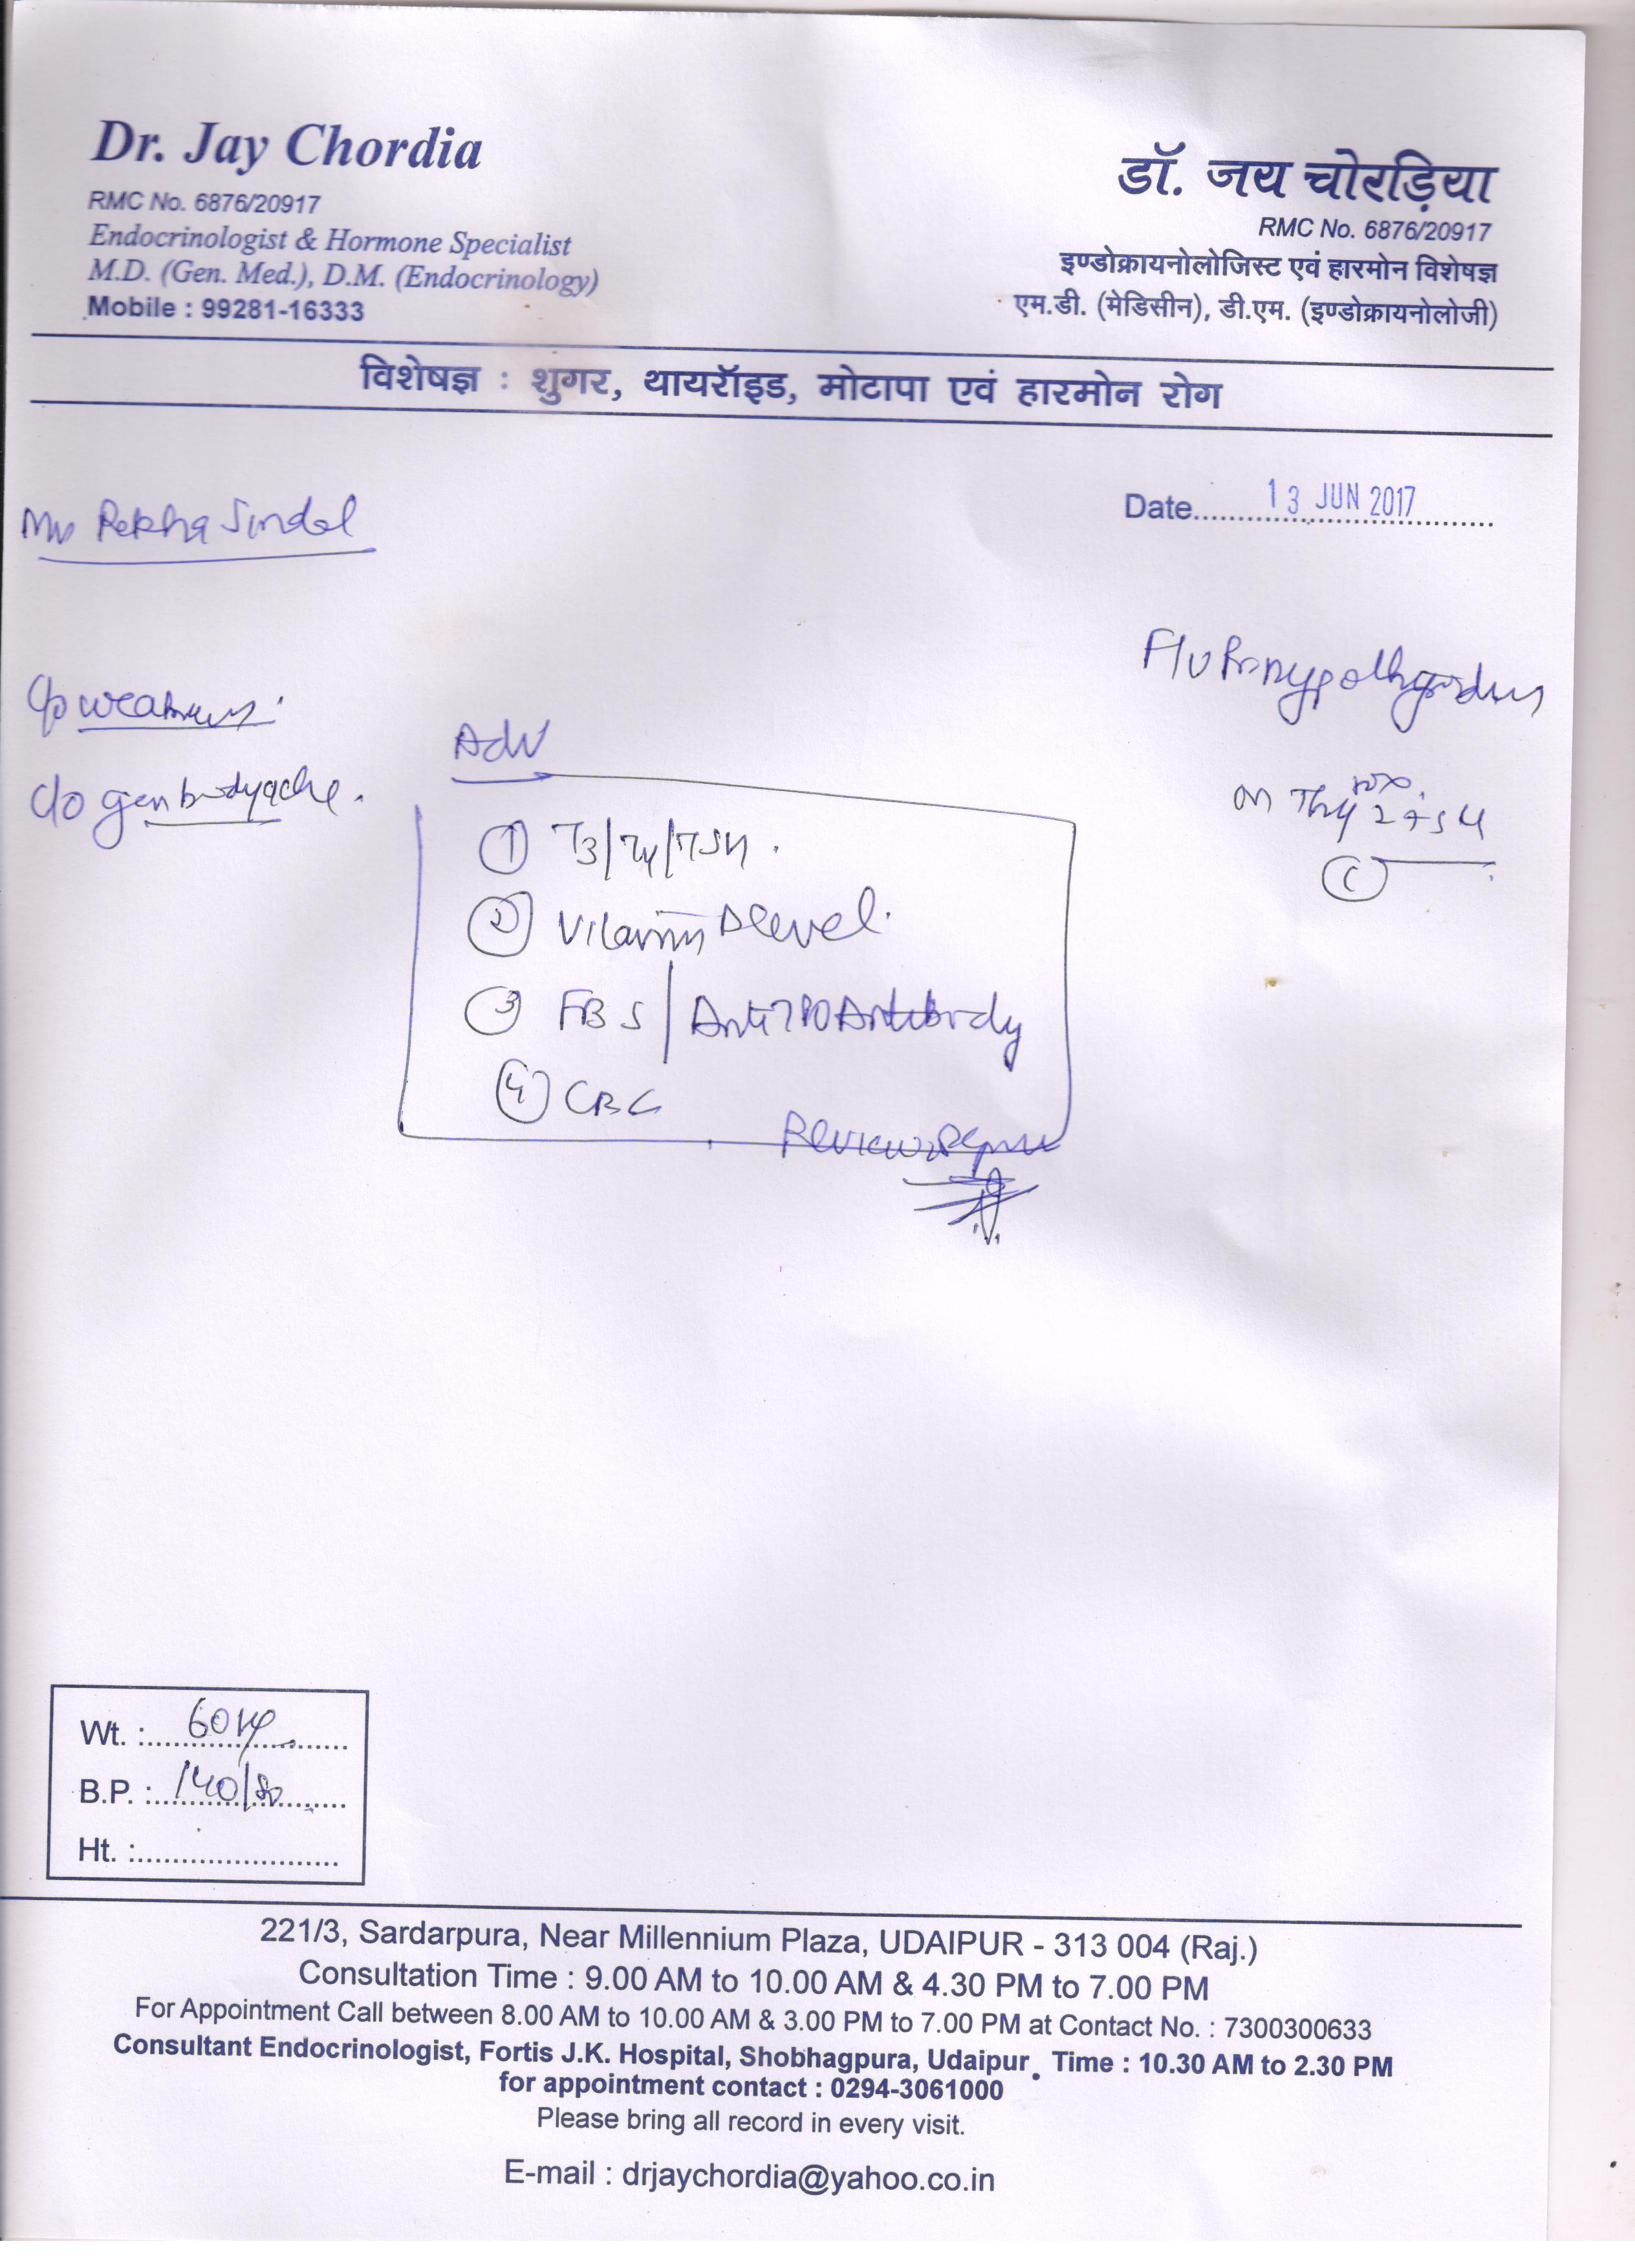 Dr. Jay Chordia
RMC No. 6876/20917
Endocrinologist & Hormone Specialist
M.D. (Gen. Med.), D.M. (Endocrinology)
Mobile : 99281-16333
डॉ. जय चोरड़िया
RMC No. 6876/20917
इण्डोक्रायनोलोजिस्ट एवं हारमोन विशेषज्ञ
एम.डी. (मेडिसीन), डी.एम. (इण्डोक्रायनोलोजी)
विशेषज्ञ : शुगर, थायरॉइड, मोटापा एवं हारमोन रोग
Date 13 JUN 2017
Rekha
F/U
c/o weakness
c/o gen bodyache.
on
Adv
① T3/T4/TSH.
② Vitamin D level.
③ FBS / Anti TPO Antibody
④ CBC
Review
Wt. : 60 kg
B.P. : 140/80
Ht. :
221/3, Sardarpura, Near Millennium Plaza, UDAIPUR - 313 004 (Raj.)
Consultation Time : 9.00 AM to 10.00 AM & 4.30 PM to 7.00 PM
For Appointment Call between 8.00 AM to 10.00 AM & 3.00 PM to 7.00 PM at Contact No. : 7300300633
Consultant Endocrinologist, Fortis J.K. Hospital, Shobhagpura, Udaipur. Time : 10.30 AM to 2.30 PM
for appointment contact : 0294-3061000
Please bring all record in every visit.
E-mail : drjaychordia@yahoo.co.in